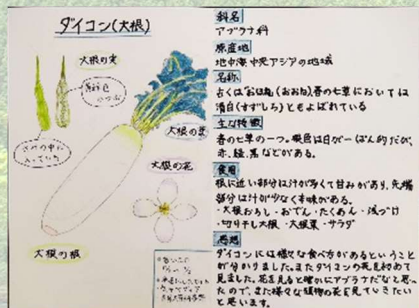 ダイコン(大根)
大根の実
茶褐色
さやの中に
入っている
大根の葉
大根の花
大根の根
科名
アブラナ科
原産地
地中海、中央アジアの地域
名称
春の七草においては
清白(すずしろ)ともよばれている
主な特徴
春の七草の一つ。根色は白が一ぱん的だが、
赤、緑、黒などがある。
食用
根に近い部分は汁が多くて甘みがあり、先端
部分は汁が少なく辛味がある。
・大根おろし・おでん・たくあん・浅づけ
・切り干し大根・大根葉・サラダ
感想
ダイコンには様々な食べ方があるということ
が分かりました。またダイコンの花を初めて
見ました。花を見ると確かにアブラナだなと思っ
たので、また様々な植物の花を見ていきたい
と思います。